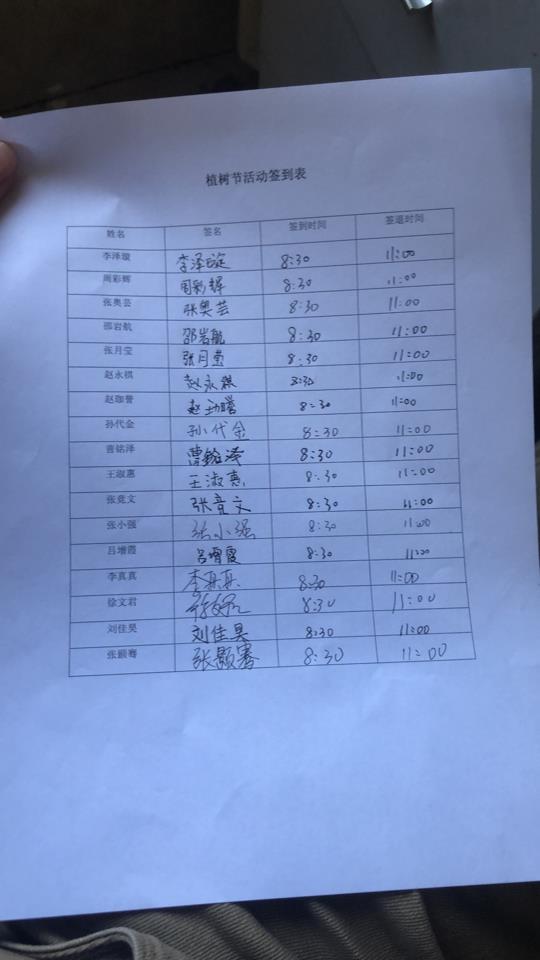 植树节活动签到表
姓名 签名 签到时间 签退时间
李泽璇 李泽璇 8:30 11:00
周彩辉 周彩辉 8:30 11:00
张奥芸 张奥芸 8:30 11:00
邵岩航 邵岩航 8:30 11:00
张月莹 张月莹 8:30 11:00
赵永祺 赵永祺 8:30 11:00
赵珈誉 赵 8:30 11:00
孙代金 孙代金 8:30 11:00
曹铭泽 曹铭泽 8:30 11:00
王淑惠 王淑惠 8:30 11:00
张竞文 张竞文 8:30 11:00
张小强 张小强 8:30 11:00
吕增霞 吕增霞 8:30 11:00
李真真 李真真 8:30 11:00
徐文君 8:30 11:00
刘佳昊 刘佳昊 8:30 11:00
张颢骞 张颢骞 8:30 11:00